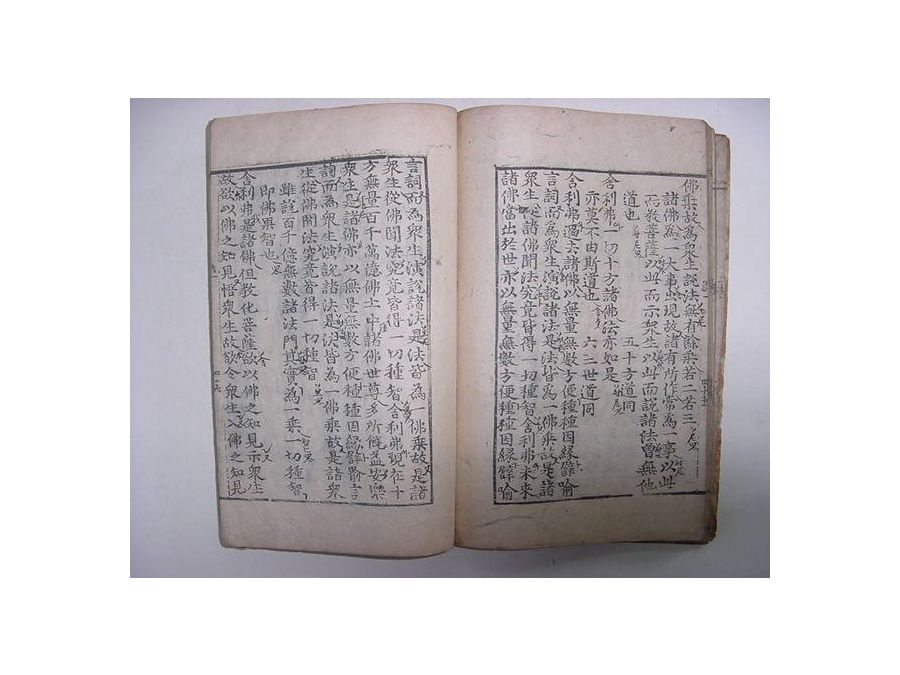 佛乘故爲衆生說法無有餘乘若二若三
諸佛爲一大事出現故諸有所作常爲一事以此
而教菩薩以此而示衆生以此而說諸法曾無他
道也 五十方道同
舍利弗一切十方諸佛法亦如是
亦莫不由斯道也 六三世道同
舍利弗過去諸佛以無量無數方便種種因緣譬喻
言詞而爲衆生演說諸法是法皆爲一佛乘故是諸
衆生從諸佛聞法究竟皆得一切種智舍利弗未來
諸佛當出於世亦以無量無數方便種種因緣譬喻
言詞而爲衆生演說諸法是法皆爲一佛乘故是諸
衆生從佛聞法究竟皆得一切種智舍利弗現在十
方無量百千萬億佛土中諸佛世尊多所饒益安樂
衆生是諸佛亦以無量無數方便種種因緣譬喻言
詞而爲衆生演說諸法是法皆爲一佛乘故是諸衆
生從佛聞法究竟皆得一切種智
雖說百千億無數諸法門其實爲一乘一切種智
即佛果智也
舍利弗是諸佛但教化菩薩欲以佛之知見示衆生
故欲以佛之知見悟衆生故欲令衆生入佛之知見